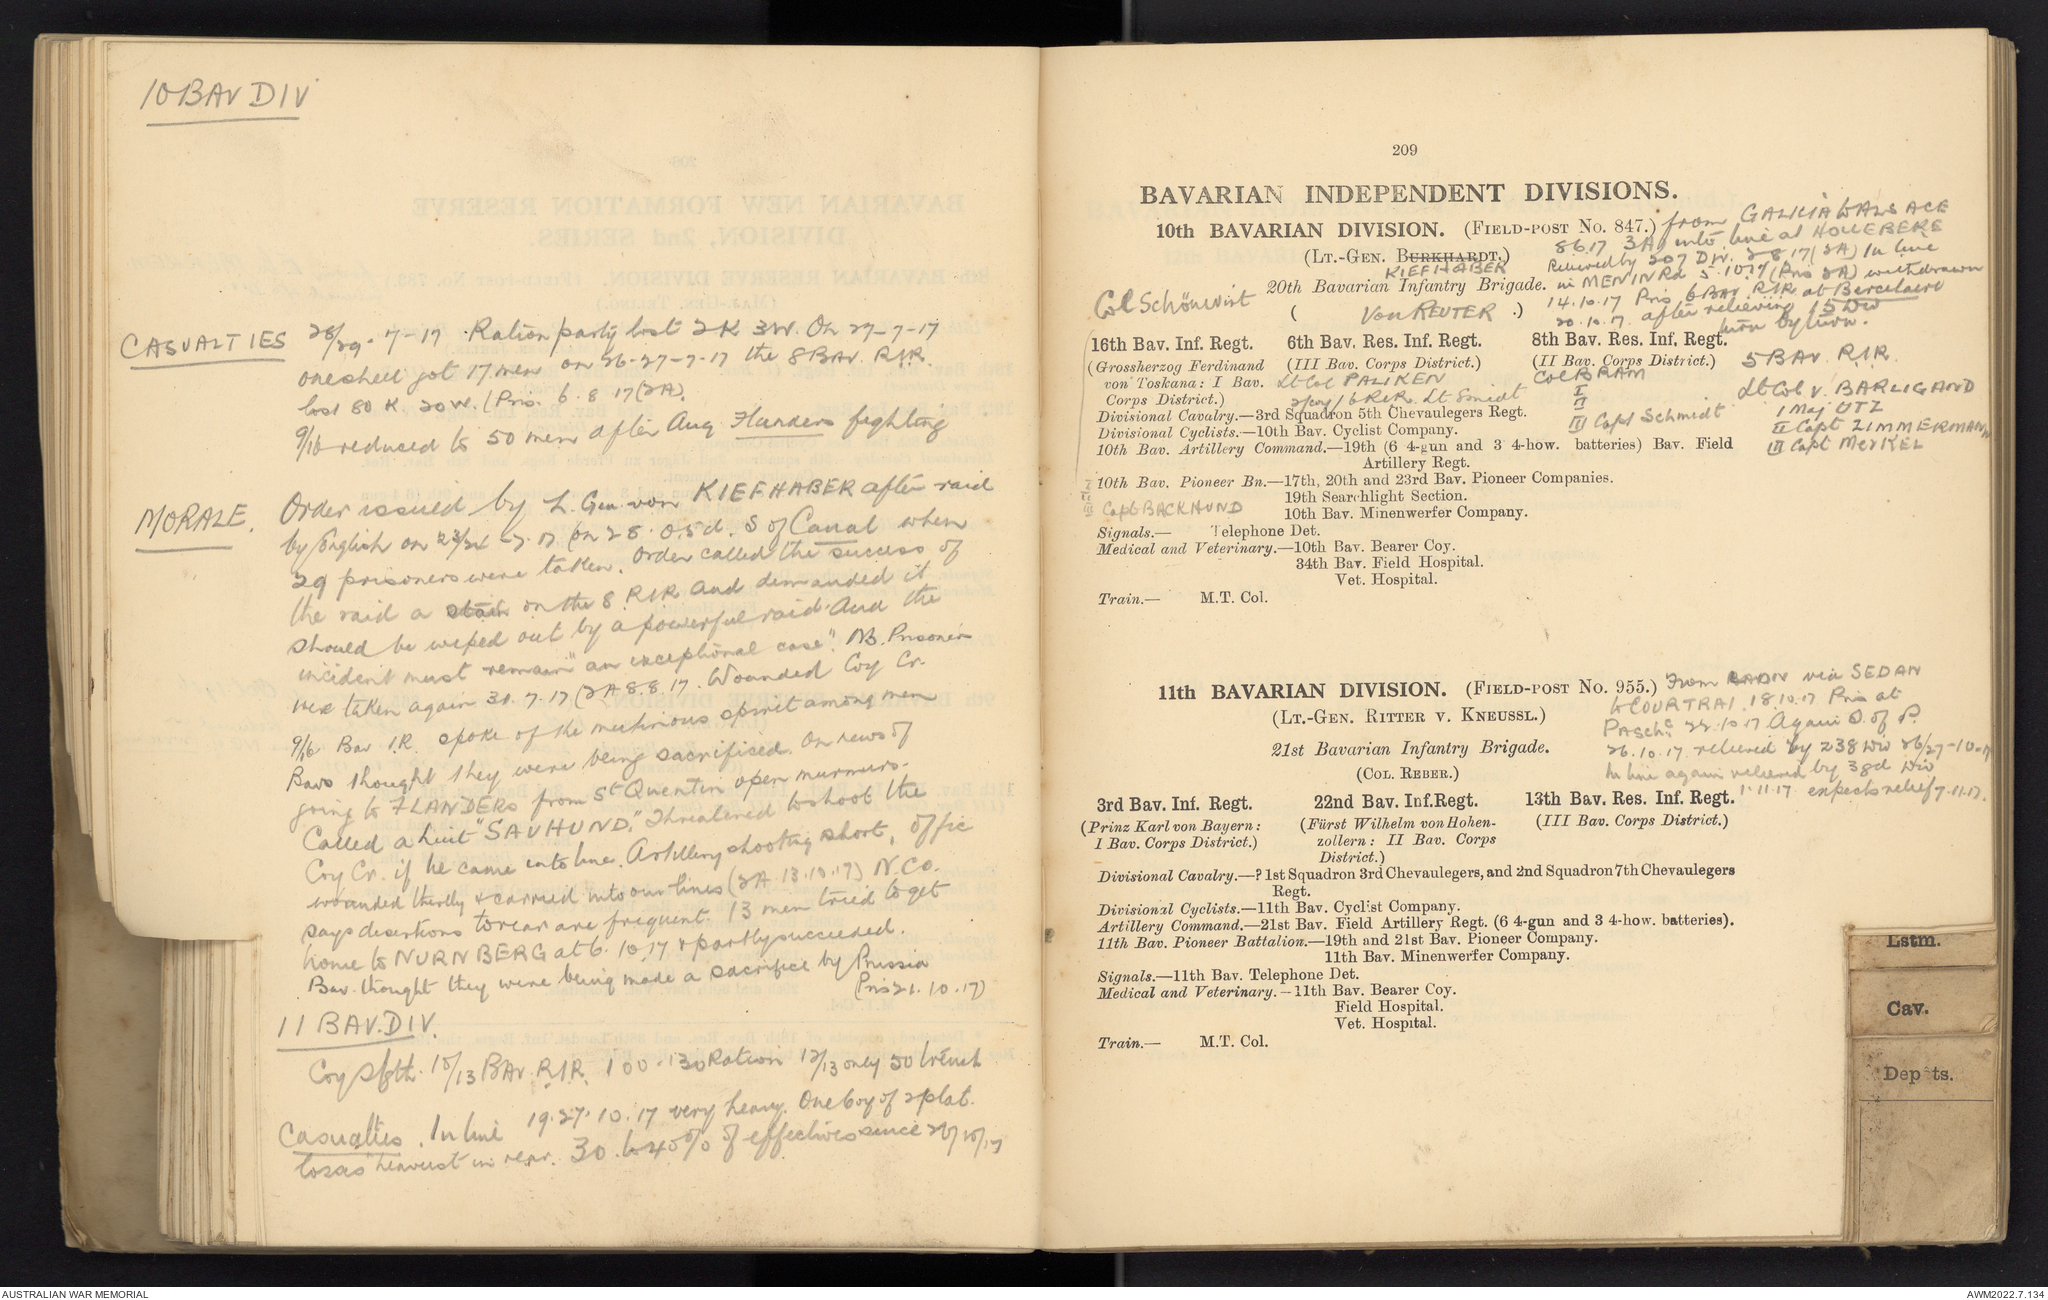 10 BAV DIV
CASUALTIES 28/29-7-17 Ration party lost 2K 3W. On 27-7-17
one shell got 17 men on 26-27-7-17 the 8 BAV. RIR.
lost 80 K 20 W. (Pris. 6.8.17 (2A).
9/16 reduced to 50 men after Aug Flanders fighting
MORALE. Order issued by L. Gen. von KIEFHABER after raid
by English on 23/24-7-17 (on 28.0.5.d. S of Canal when
29 prisoners were taken. Order called the success of
the raid a stain on the 8 RIR and demanded it
should be wiped out by a powerful raid and the
incident must remain "an exceptional case". NB. Prisoners
were taken again 30.7.17 (2A 8.8.17. Wounded Coy Cr.
9/16 Bav I.R. spoke of the mutinious spirit among men
Bavs thought they were being sacrificed. On news of
going to FLANDERS from St Quentin open murmurs.
Called a Lieut "SAUHUND." Threatened to shoot the
Coy Cr. if he came into line. Artillery shooting short, offic
wounded thereby & carried into our lines (2A 13.10.17) N.Co.
says desertions to rear are frequent. 13 men tried to get
home to NURNBERG at 6.10.17 & partly succeeded.
Bav. thought they were being made a sacrifice by Prussia
(Pris 21.10.17)
11 BAV. DIV.
Coy Sgth. 10/13 BAV. RIR. 100-130 Ration 12/13 only 50 trench
Casualties. In line 19.27.10.17 very heavy. One Coy of 2 plat.
losses heaviest in rear. 30 to 40% of effectives since 20/10/17
209
BAVARIAN INDEPENDENT DIVISIONS.
10th BAVARIAN DIVISION. (FIELD-POST No. 847.) from GALICIA to ALSACE
8 6.17 3A into line at HOLLEBEKE
(LT.-GEN. BURKHARDT.) Relieved by 207 DIV. 2-8.17 (2A) In line
KIEFHABER
20th Bavarian Infantry Brigade. in MENIN Rd 5.10.17 (Pris 2A) withdrawn
Col Schönwirt
( Von REUTER .) 14.10.17 Pris 6 BAV RIR at Becelaere
20.10.17. after relieving 15 DIV
turn by turn.
16th Bav. Inf. Regt. 6th Bav. Res. Inf. Regt. 8th Bav. Res. Inf. Regt.
5 BAV. RIR.
(Grossherzog Ferdinand (III Bav. Corps District.) (II Bav. Corps District.)
von Toskana: I Bav. Lt Col PALIKEN Col BRAM
Lt Col v. BARLIGAND
Corps District.) 2/coy/6 RIR. Lt Smidt I
1 Maj UTZ
Divisional Cavalry.—3rd Squadron 5th Chevaulegers Regt. II
III Capt Schmidt
II Capt ZIMMERMANN
Divisional Cyclists.—10th Bav. Cyclist Company.
III Capt MERKEL
10th Bav. Artillery Command.—19th (6 4-gun and 3 4-how. batteries) Bav. Field
Artillery Regt.
10th Bav. Pioneer Bn.—17th, 20th and 23rd Bav. Pioneer Companies.
I
II
19th Searchlight Section.
III Capt BACKHUND 10th Bav. Minenwerfer Company.
Signals.— Telephone Det.
Medical and Veterinary.—10th Bav. Bearer Coy.
34th Bav. Field Hospital.
Vet. Hospital.
Train.— M.T. Col.
11th BAVARIAN DIVISION. (FIELD-POST No. 955.) From via SEDAN
to COURTRAI. 18.10.17 Pris at
(LT.-GEN. RITTER V. KNEUSSL.)
Pasche 22.10.17 Again S. of P.
21st Bavarian Infantry Brigade. 26.10.17. relieved by 238 DIV 26/27-10-17
(COL. REBER.) In line again relieved by 3 Gd DIV
1.11.17 expects relief 7.11.17.
3rd Bav. Inf. Regt. 22nd Bav. Inf. Regt. 13th Bav. Res. Inf. Regt.
(Prinz Karl von Bayern: (Fürst Wilhelm von Hohen- (III Bav. Corps District.)
I Bav. Corps District.) zollern: II Bav. Corps
District.)
Divisional Cavalry.—? 1st Squadron 3rd Chevaulegers, and 2nd Squadron 7th Chevaulegers
Regt.
Divisional Cyclists.—11th Bav. Cyclist Company.
Artillery Command.—21st Bav. Field Artillery Regt. (6 4-gun and 3 4-how. batteries).
11th Bav. Pioneer Battalion.—19th and 21st Bav. Pioneer Company.
11th Bav. Minenwerfer Company.
Signals.—11th Bav. Telephone Det.
Medical and Veterinary.—11th Bav. Bearer Coy.
Field Hospital.
Vet. Hospital.
Train.— M.T. Col.
Lstm.
Cav.
Depots.
AUSTRALIAN WAR MEMORIAL
AWM2022.7.134